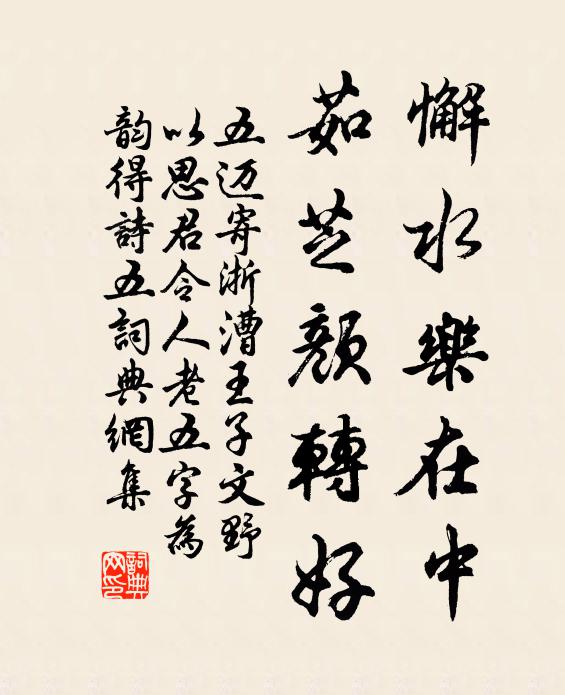 懈水樂在中
茹芝顏轉好
五迈寄浙漕王子文野
以思君令人老五字為
韵得詩五詞典網集
詞典网印